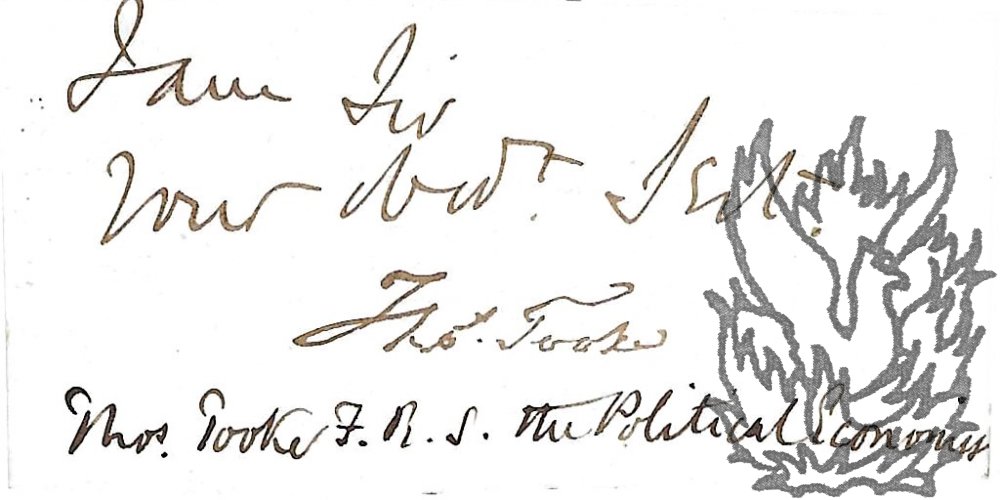 I am Sir
Your Obedt. Servt.
Thos. Tooke
Thos. Tooke F. R. S. the Political Economist